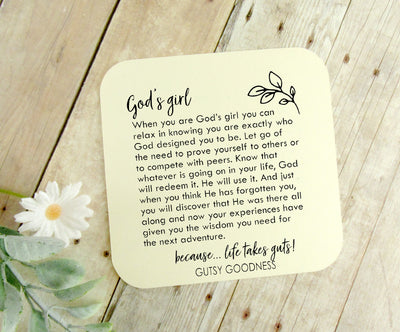 God's girl
When you are God's girl you can
relax in knowing you are exactly who
God designed you to be. Let go of
the need to prove yourself to others or
to compete with peers. Know that
whatever is going on in your life, God
will redeem it. He will use it. And just
when you think He has forgotten you,
you will discover that He was there all
along and now your experiences have
given you the wisdom you need for
the next adventure.
because... life takes guts!
GUTSY GOODNESS